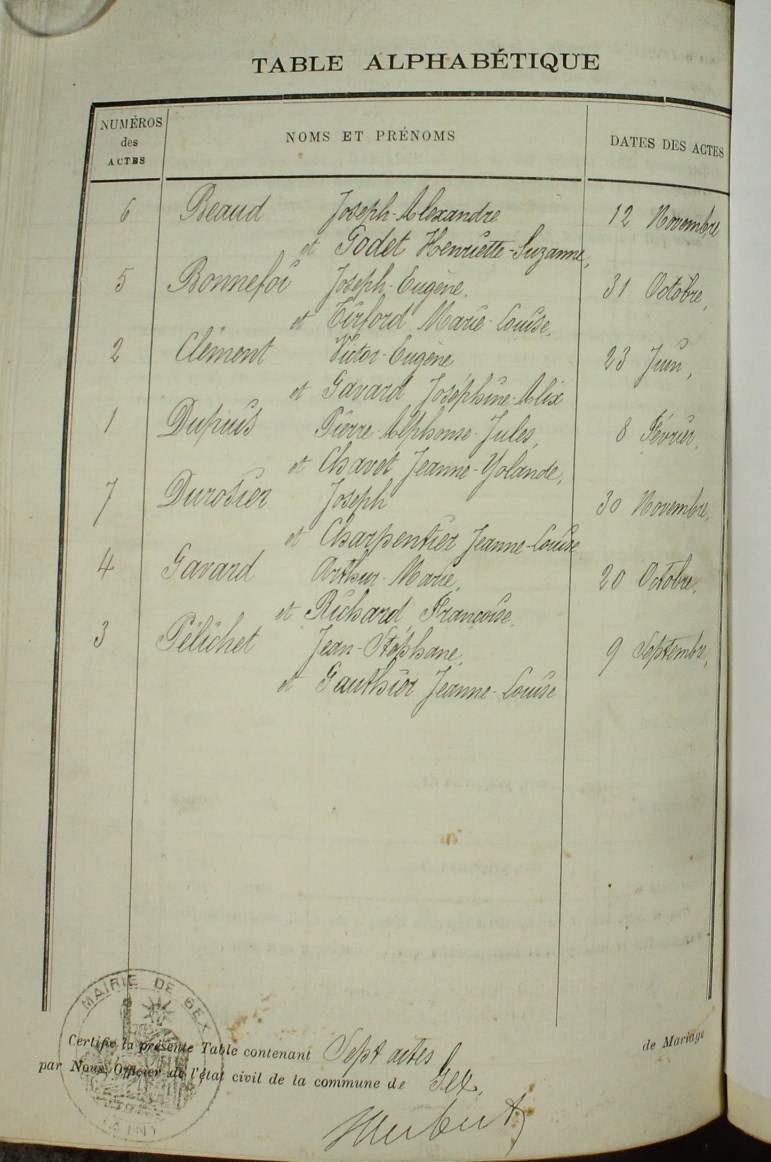 TABLE ALPHABÉTIQUE
NUMÉROS des ACTES
NOMS ET PRÉNOMS
DATES DES ACTES
6 Beaud Joseph-Alexandre 12 Novembre
et Godet Henriette-Suzanne,
5 Bonnefoi Joseph-Eugène, 31 Octobre,
et Tirford Marie-Louise,
2 Clément Victor-Eugène 23 Juin,
et Gavard Joséphine-Alix
1 Dupuis Pierre-Alphonse-Jules, 8 Février,
et Chavet Jeanne-Yolande,
7 Durosier Joseph 30 Novembre,
et Charpentier Jeanne-Louise
4 Gavard Arthur-Marie, 20 Octobre,
et Richard Françoise,
3 Pélichet Jean-Stéphane, 9 Septembre,
et Gauthier Jeanne-Louise
MAIRIE DE GEX
(AIN)
Certifie la présente Table contenant Sept actes de Mariage
par Nous, Officier de l'état civil de la commune de Gex,